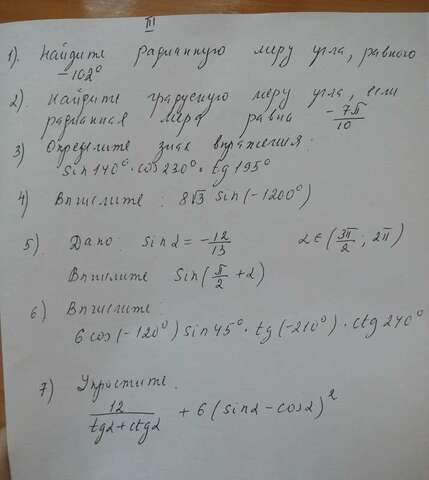 III
1). Найдите радианную меру угла, равного
-102°
2). Найдите градусную меру угла, если
радианная мера равна -7π/10
3) Определите знак выражения.
sin140° · cos230° · tg195°
4) Вычислите: 8√3 sin(-1200°)
5). Дано: sinα = -12/13 α∈(3π/2; 2π)
Вычислите Sin(π/2 + α)
6) Вычислите:
6cos(-120°) sin45° · tg(-210°) · ctg240°
7) Упростите.
12/(tgα+ctgα) + 6(sinα-cosα)²